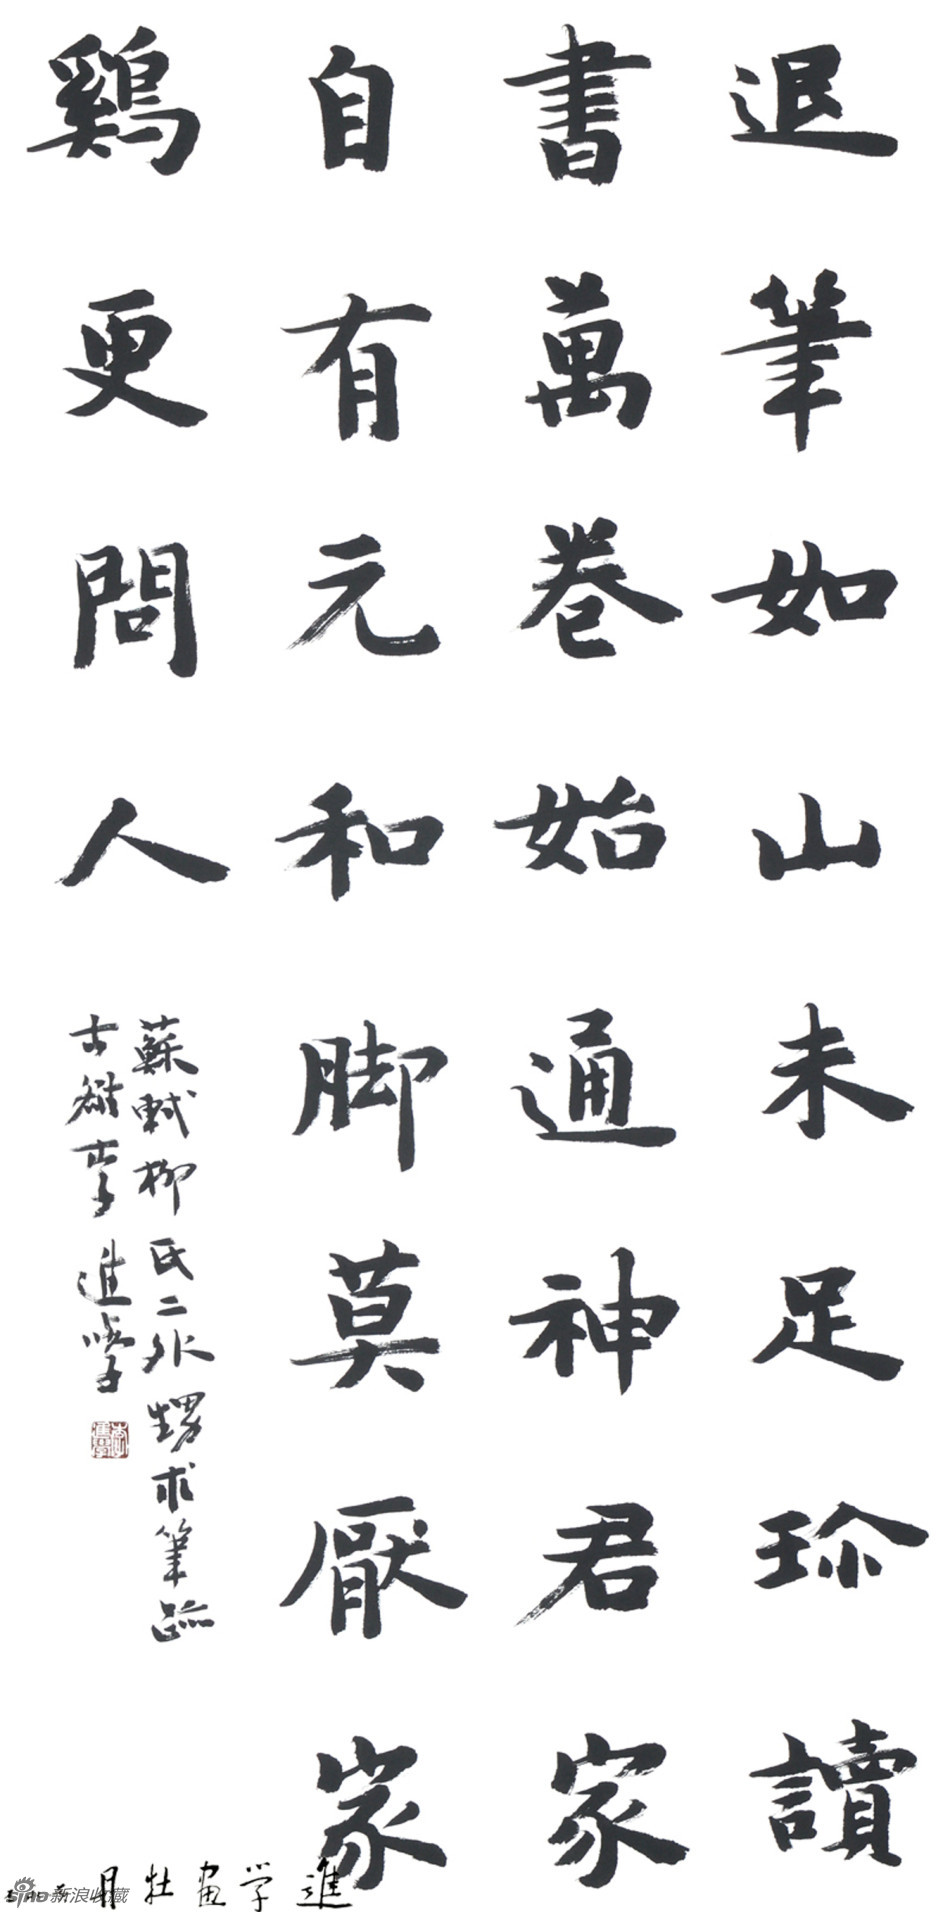 退筆如山未足珍讀
書萬卷始通神君家
自有元和脚莫厭家
鷄更問人
蘇軾柳氏二外甥求筆跡
古 李進學
進學畫牡
sina 新浪收藏